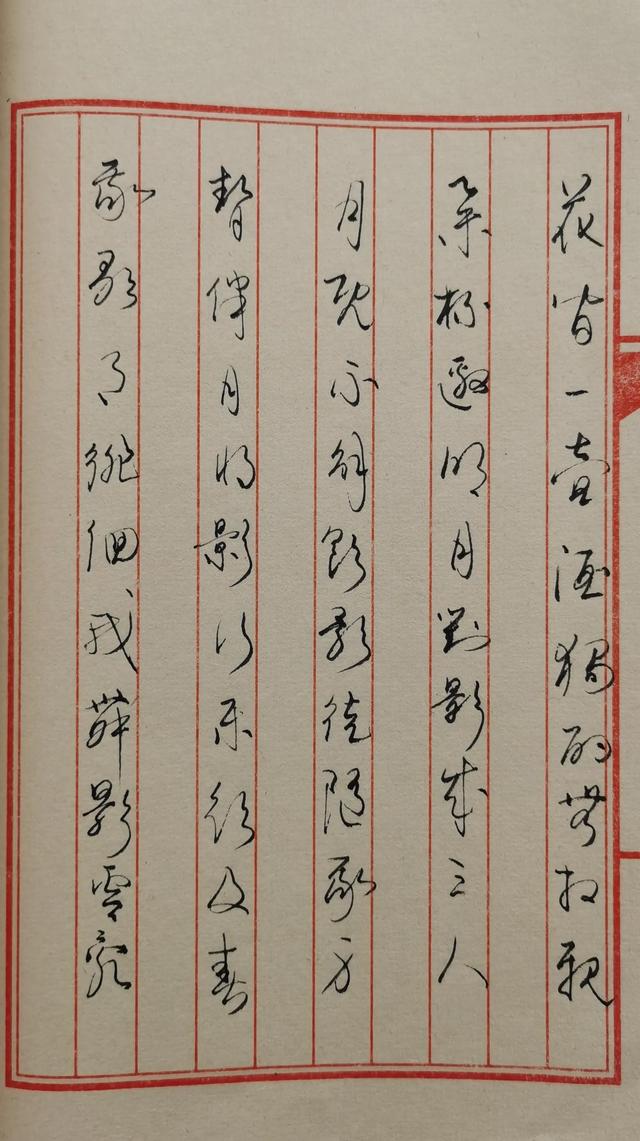 花間一壺酒獨酌無相親
舉杯邀明月對影成三人
月既不解飲影徒隨我身
暫伴月將影行樂須及春
我歌月徘徊我舞影零亂